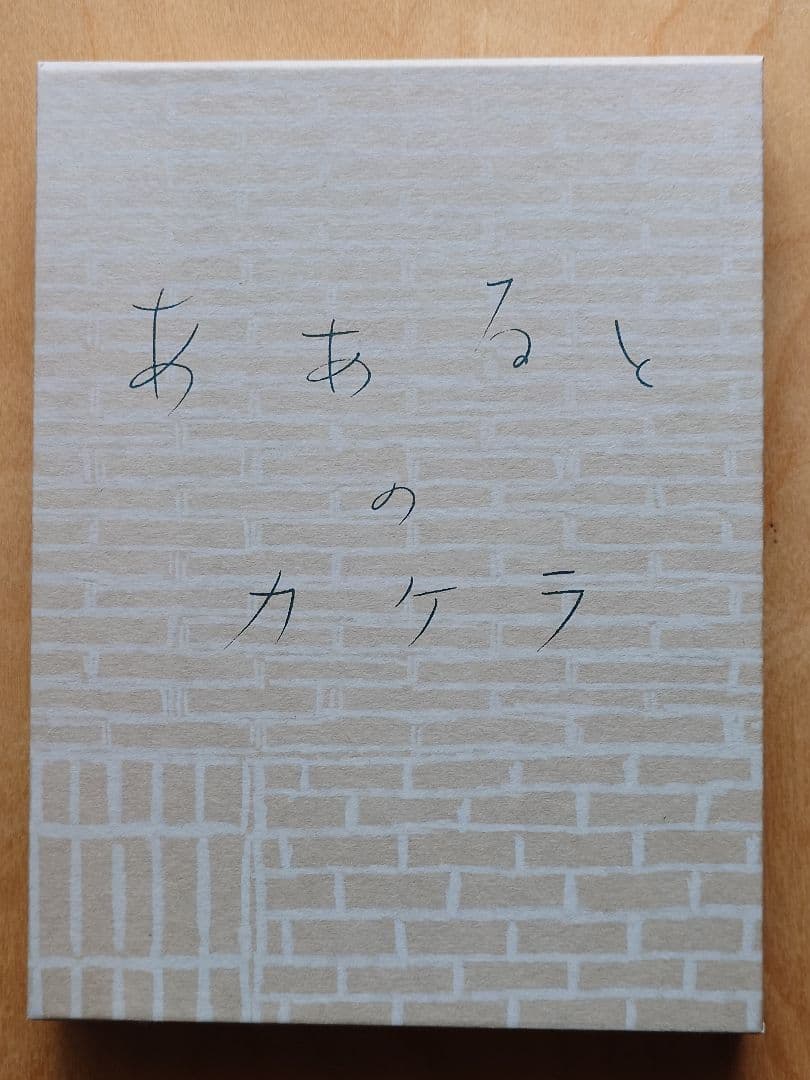 ああると
の
カケラ